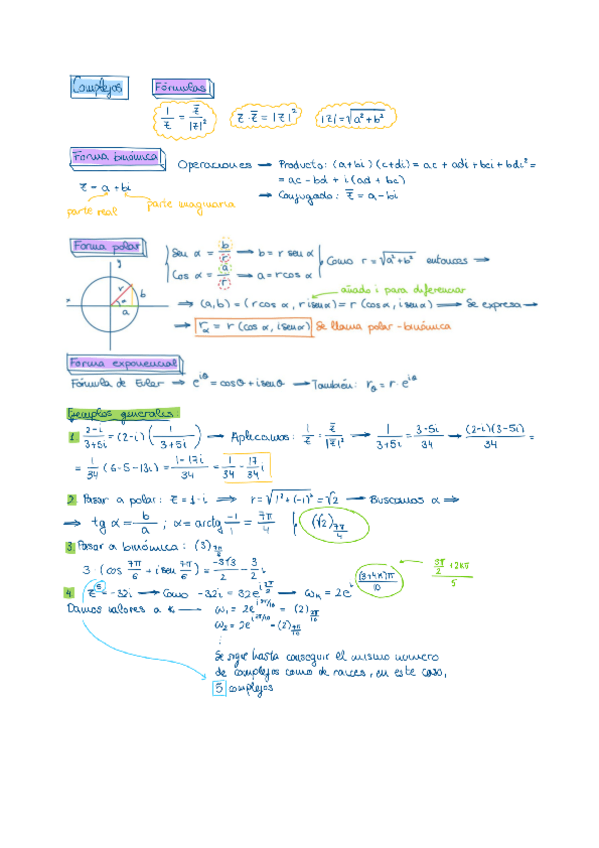 Complejos   Fórmulas
1/z = z̄/|z|²   z·z̄ = |z|²   |z| = √(a²+b²)
Forma binómica   Operaciones → Producto: (a+bi)(c+di) = ac + adi + bci + bdi² =
= ac - bd + i(ad + bc)
z = a + bi   → Conjugado: z̄ = a - bi
parte real   parte imaginaria
Forma polar   Seu α = b/r → b = r seu α   Como r = √(a²+b²) entonces →
Cos α = a/r → a = r cos α
y   r   b   α   a
añado i para diferenciar
⇒ (a,b) = (r cos α, r i seu α) = r (cos α, i seu α) → Se expresa →
→ r_α = r (cos α, i seu α)   Se llama polar-binómica
Forma exponencial
Fórmula de Euler → e^(iθ) = cos θ + i seu θ → También: r_θ = r·e^(iθ)
Ejemplos generales
1. (2-i)/(3+5i) = (2-i)(1/(3+5i)) → Aplicamos: 1/z = z̄/|z|² → 1/(3+5i) = (3-5i)/34 → (2-i)(3-5i)/34 =
= 1/34 (6-5-13i) = (1-17i)/34 = 1/34 - 17/34 i
2. Pasar a polar: z = 1-i ⇒ r = √(1²+(-1)²) = √2 → Buscamos α ⇒
⇒ tg α = b/a ; α = arctg -1/1 = 7π/4   (√2)_(7π/4)
3. Pasar a binómica: (3)_(7π/6)
3·(cos 7π/6 + i seu 7π/6) = -3√3/2 - 3/2 i
4. z⁵ = -32i → Como -32i = 32e^(i 3π/2) → ω_k = 2e^(i (3+4k)π/10)   (3π/2 + 2kπ)/5
Damos valores a k → ω₁ = 2e^(i 3π/10) = (2)_(3π/10)
ω₂ = 2e^(i 7π/10) = (2)_(7π/10)
⋮
Se sigue hasta conseguir el mismo número
de complejos como de raíces, en este caso,
5 complejos